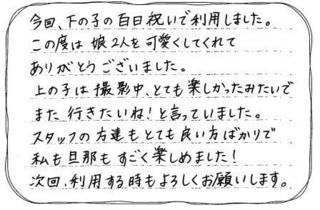 今回、下の子の百日祝いで利用しました。
この度は娘2人を可愛くしてくれて
ありがとうございました。
上の子は撮影中、とても楽しかったみたいで
また行きたいね!と言っていました。
スタッフの方達もとても良い方ばかりで
私も旦那もすごく楽しめました!
次回、利用する時もよろしくお願いします。